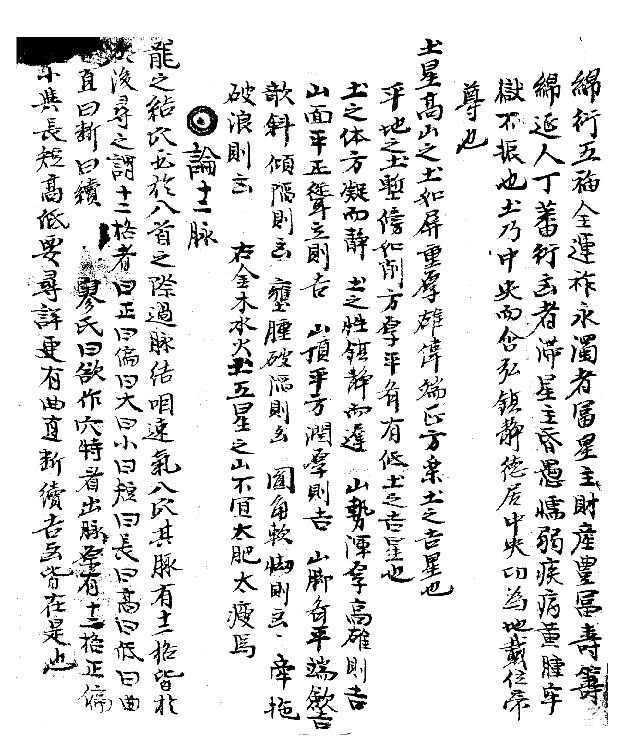 綿衍五福全運祚永濁者富星主財產豊冨壽籌
綿延人丁蕃衍玄者滯星主昏愚懦弱疾病黄腫牢
獄不振也土乃中央而含弘鎮静德居中央功為地載位常
尊也
土星高山之土如屏重厚雄偉端正方棄土之吉星也
平地之土塹傍如削方厚平有有低土之吉星也
土之体方凝而静 土之性鎮静而遲 山勢渾厚高雄則吉
山面平正聳立則吉 山頂平方濶厚則吉 山脚齐平端歛吉
欹斜傾陷則玄 壅腫破陷則玄 圓角軟㘭則玄 牽拖
破浪則玄 右金木水火土五星之山不宜太肥太瘦焉
◎論十二脉
龍之結穴出於八首之際過脉结咽速氣八穴其脉有十二格皆於
後尋之謂十二格者曰正曰偏曰大曰小曰短曰長曰高曰低曰曲
直曰断曰續 廖氏曰欲作穴特看出脉脉有十二格正偏
小與長短高低要尋詳更有曲直断續吉玄皆在是也